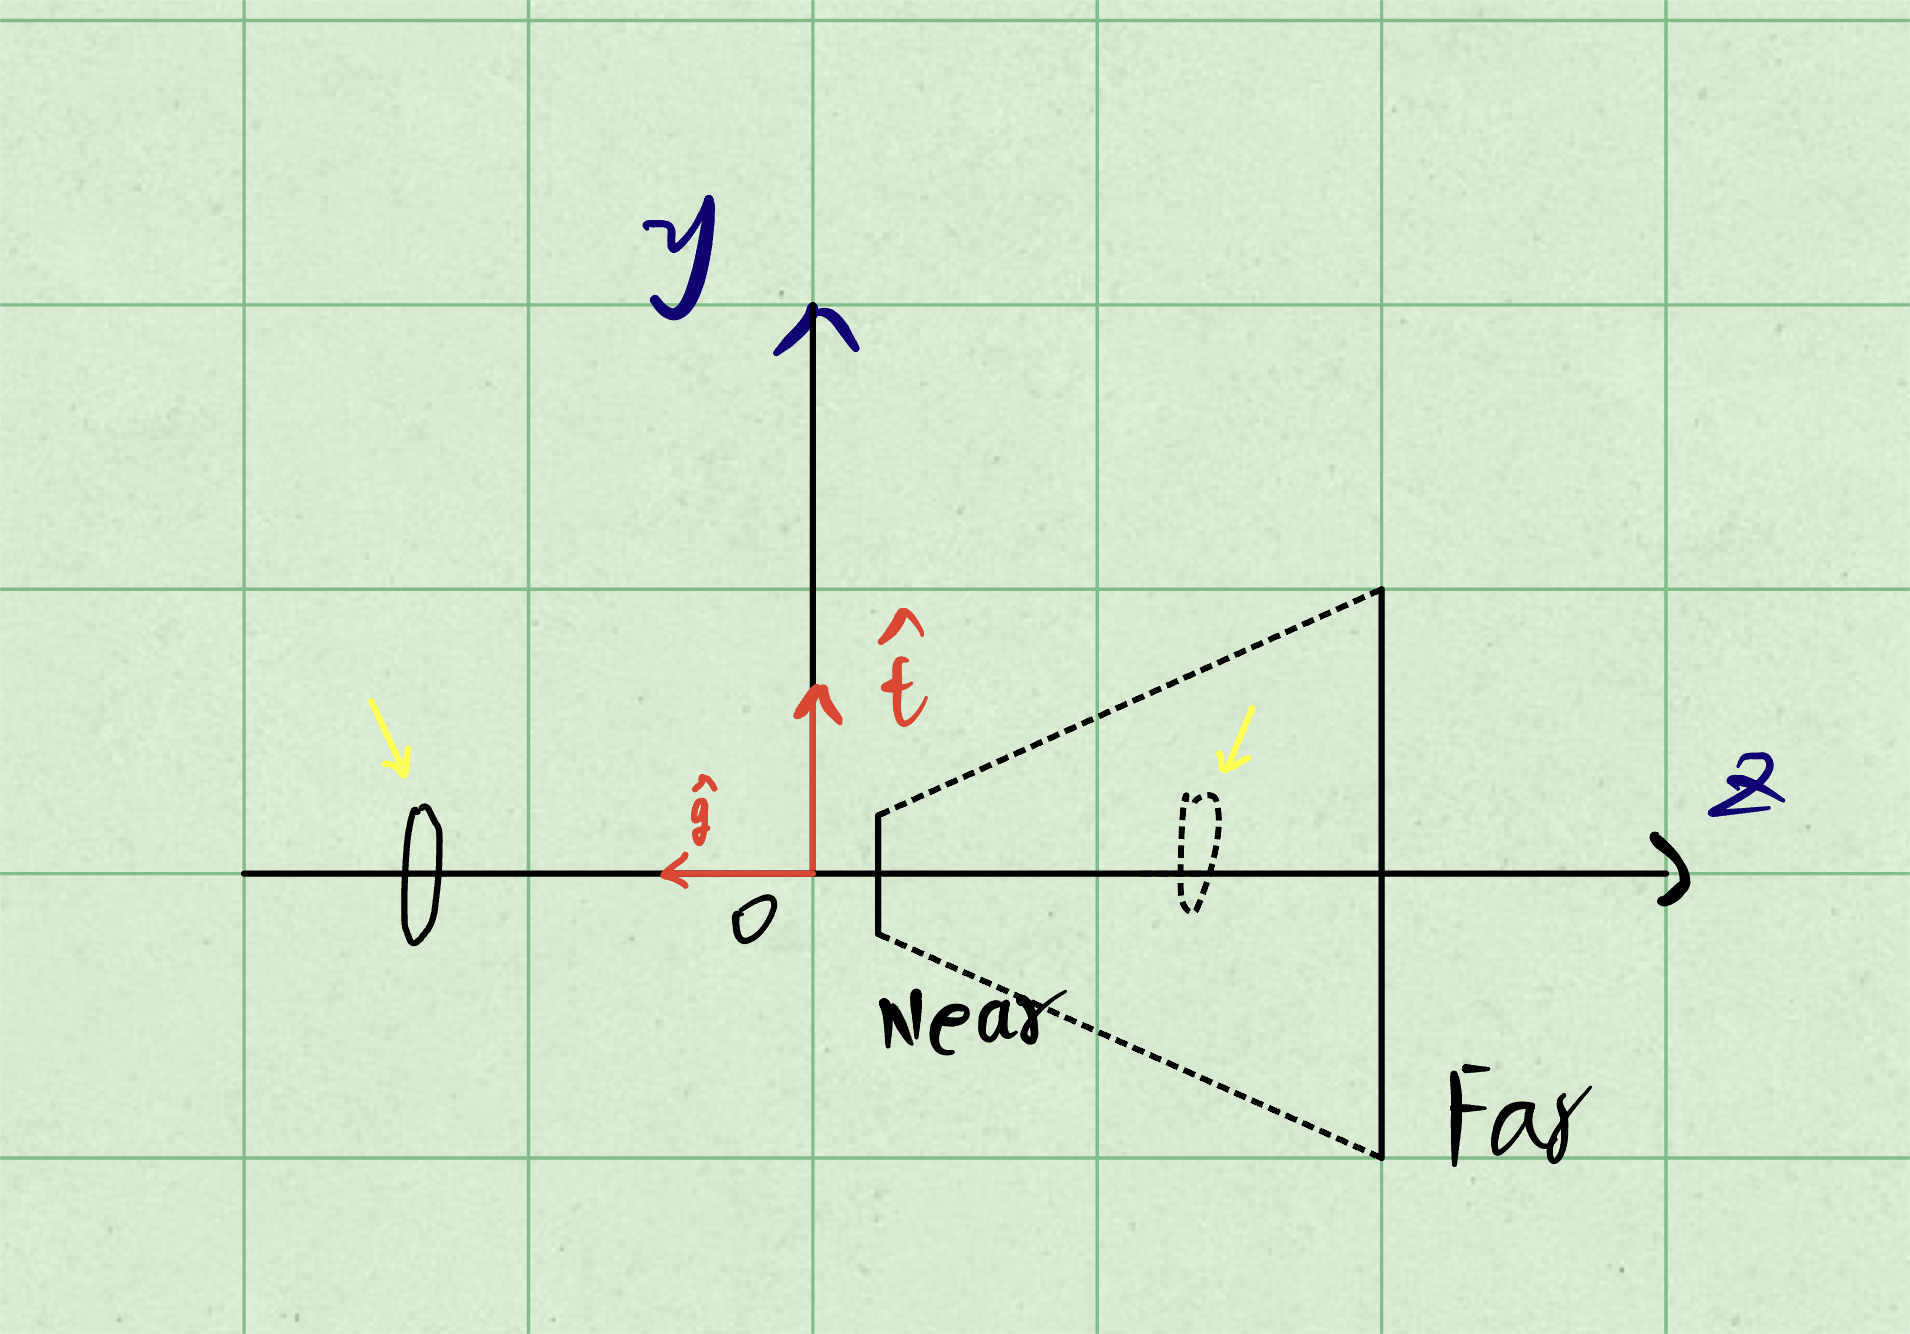 y
t̂
ĝ
z
O
Near
Far